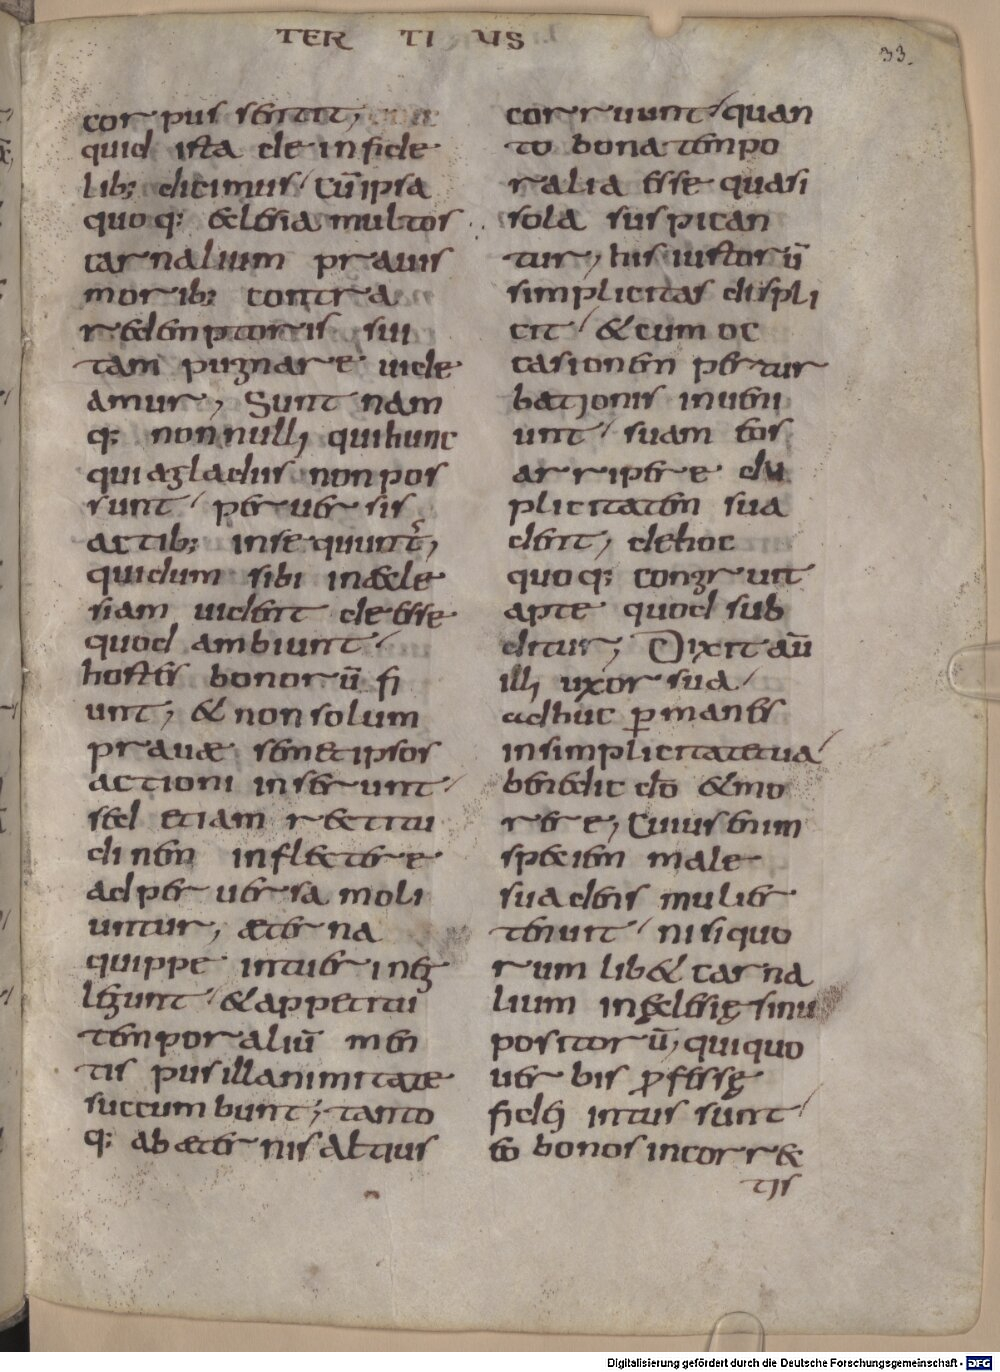 TER TI US
33.
corpus sentit;
quid ista de infide
lib; dicimus / cū ipsa
quoq; &clesia multos
carnalium prauis
morib; contra
redemptoris sui
tam pugnare uide
amur, Sunt nam
q; nonnulli qui hunc
quia gladiis non pos
sunt / peruersis
actib; insequunt᷑,
qui dum sibi in &cle
siam uident deesse
quod ambiunt /
hostes bonorū fi
unt; & non solum
prauæ semetipsos
actioni inserunt /
sed etiam rectitu
dinem inflectere
ad peruersa moli
untur, æterna
quippe intueri neg
legunt / & appetitu
temporaliū men
tis pusillanimitate
succumbunt; tanto
q; ab æternis altius
corruunt / quan
to bona tempo
ralia esse quasi
sola suspican
tur, his iustorū
simplicitas displi
cit / & cum oc
casionem pertur
bationis inueni
unt / suam eos
arripere du
plicitatem sua
dent, de hoc
quoq; congruit
apte quod sub
ditur; Dixit aū
illi uxor sua /
adhuc ꝑmanes
in simplicitate tua /
benedic dō & mo
rere, Cuius enim
speciem male
suadens mulier
tenuit / nisi quo
rum lib& carna
lium in &clesię sinu
positorū, qui quo
uerbis ꝓfessę
fidei intus sunt /
eo bonos incorr&
tis
Digitalisierung gefördert durch die Deutsche Forschungsgemeinschaft - DFG